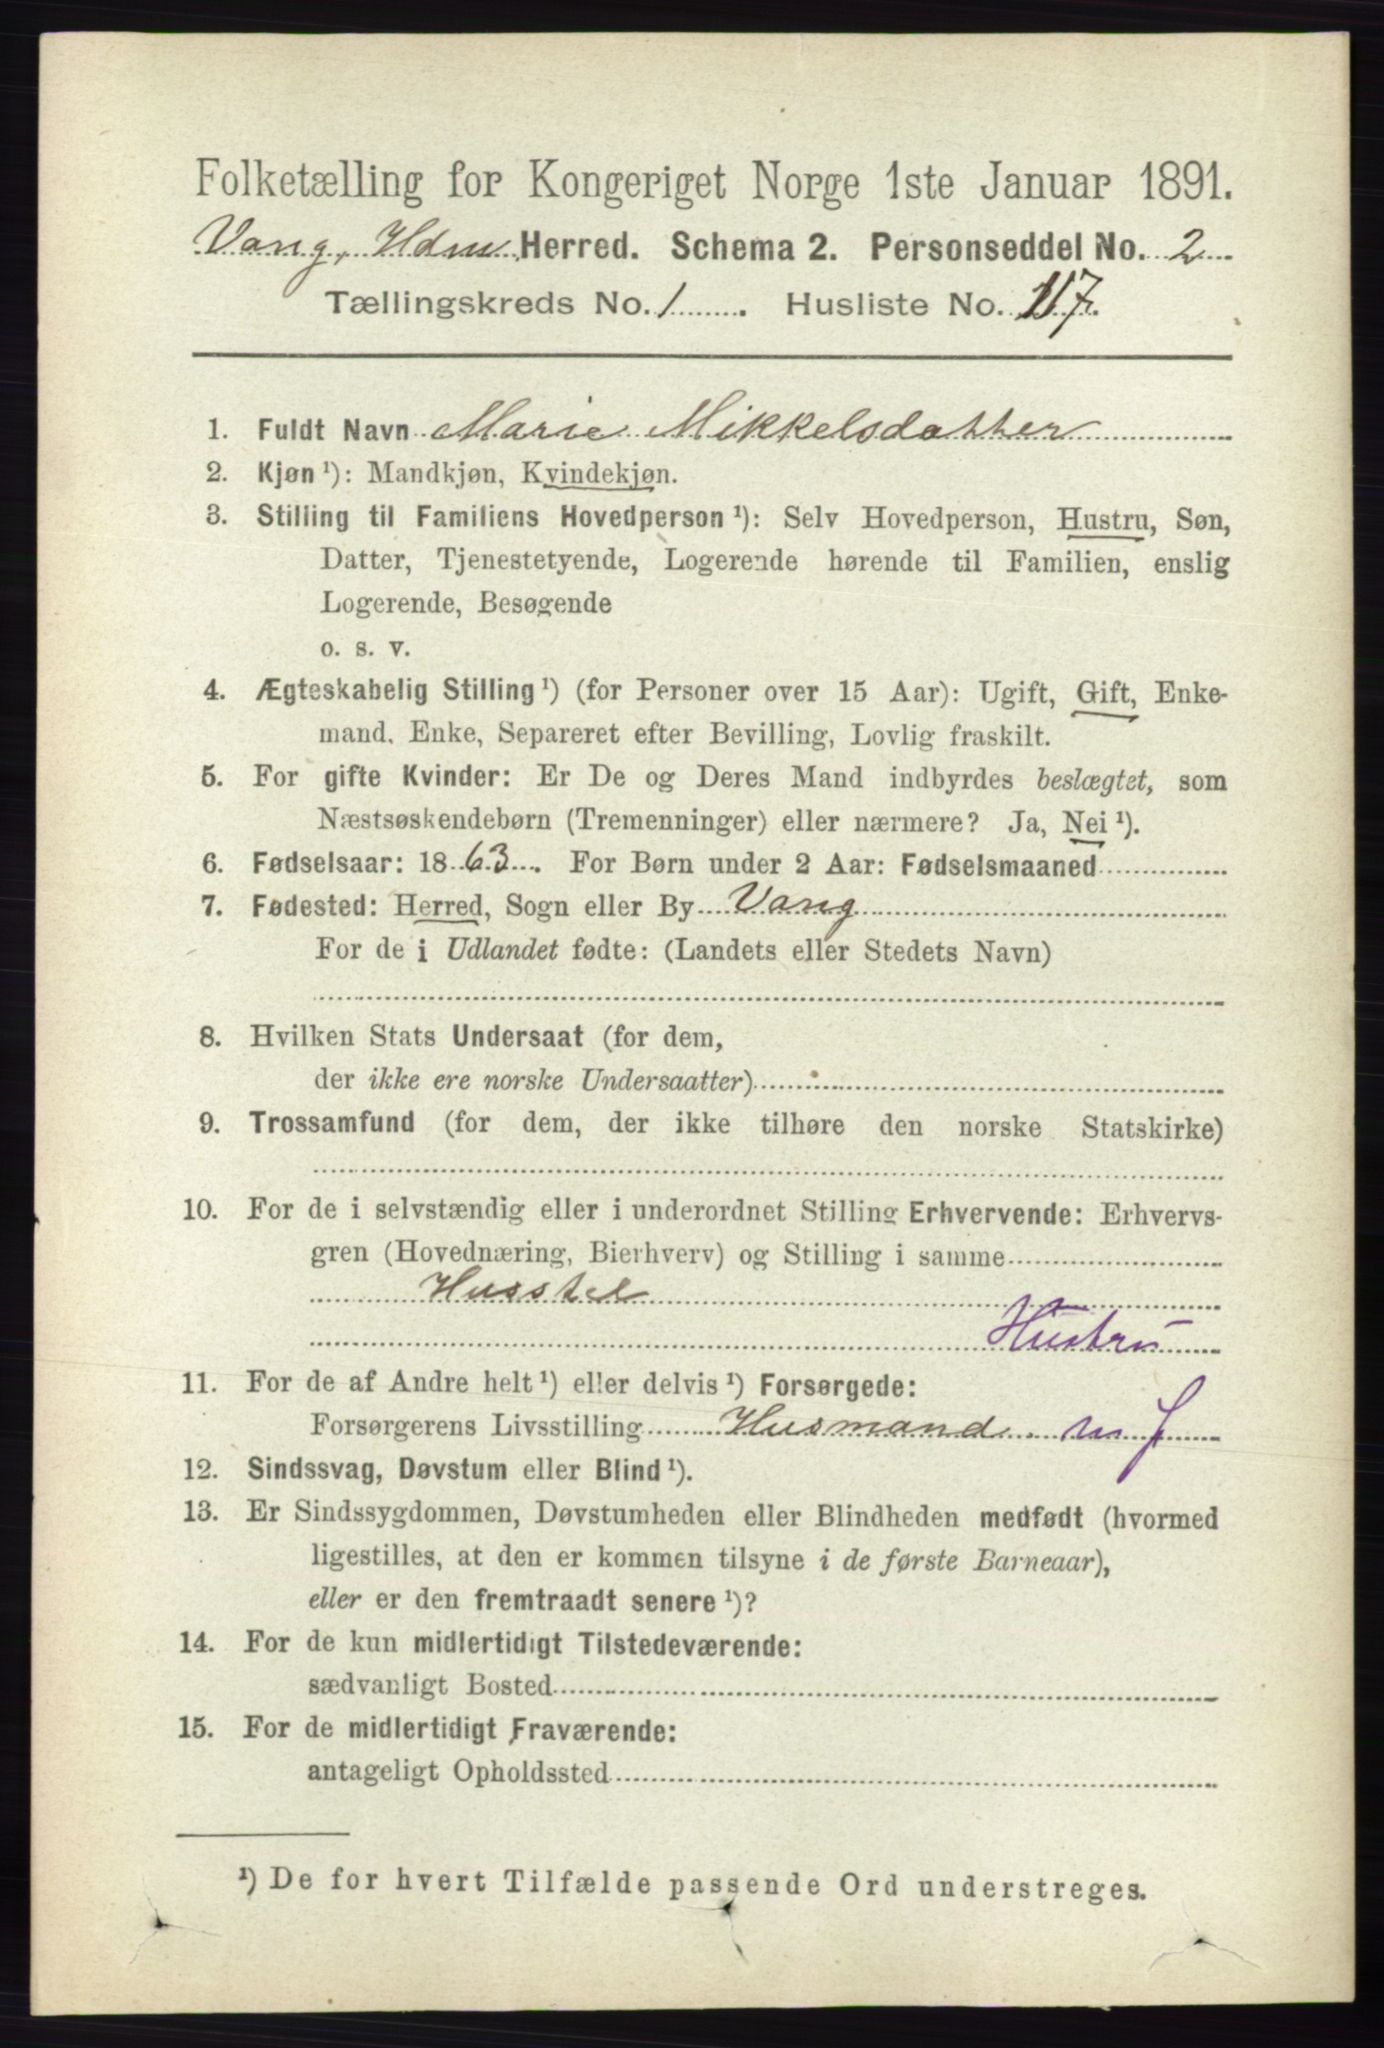 Folketælling for Kongeriget Norge 1ste Januar 1891.
Vang, Hdm. Herred. Schema 2. Personseddel No. 2
Tællingskreds No. 1. Husliste No. 117.
1. Fuldt Navn Marie Mikkelsdatter
2. Kjøn ¹): Mandkjøn, Kvindekjøn.
3. Stilling til Familiens Hovedperson ¹): Selv Hovedperson, Hustru, Søn,
Datter, Tjenestetyende, Logerende hørende til Familien, enslig
Logerende, Besøgende
o. s. v.
4. Ægteskabelig Stilling ¹) (for Personer over 15 Aar): Ugift, Gift, Enke-
mand, Enke, Separeret efter Bevilling, Lovlig fraskilt.
5. For gifte Kvinder: Er De og Deres Mand indbyrdes beslægtet, som
Næstsøskendebørn (Tremenninger) eller nærmere? Ja, Nei ¹).
6. Fødselsaar: 1863. For Børn under 2 Aar: Fødselsmaaned
7. Fødested: Herred, Sogn eller By Vang
For de i Udlandet fødte: (Landets eller Stedets Navn)
8. Hvilken Stats Undersaat (for dem,
der ikke ere norske Undersaatter)
9. Trossamfund (for dem, der ikke tilhøre den norske Statskirke)
10. For de i selvstændig eller i underordnet Stilling Erhvervende: Erhvervs-
gren (Hovednæring, Bierhverv) og Stilling i samme
Husstel
Hustru
11. For de af Andre helt ¹) eller delvis ¹) Forsørgede:
Forsørgerens Livsstilling Husmand m J
12. Sindssvag, Døvstum eller Blind ¹).
13. Er Sindssygdommen, Døvstumheden eller Blindheden medfødt (hvormed
ligestilles, at den er kommen tilsyne i de første Barneaar),
eller er den fremtraadt senere ¹)?
14. For de kun midlertidigt Tilstedeværende:
sædvanligt Bosted
15. For de midlertidigt Fraværende:
antageligt Opholdssted
¹) De for hvert Tilfælde passende Ord understreges.